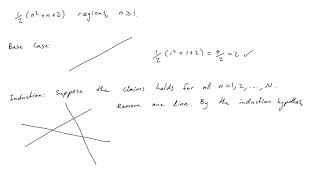 ½(n²+n+2) regions, n≥1.
Base Case:
½(1²+1+2) = 4/2 = 2 ✓
Induction: Suppose the claims holds for all n=1,2,...,N.
Remove one line. By the induction hypothes,